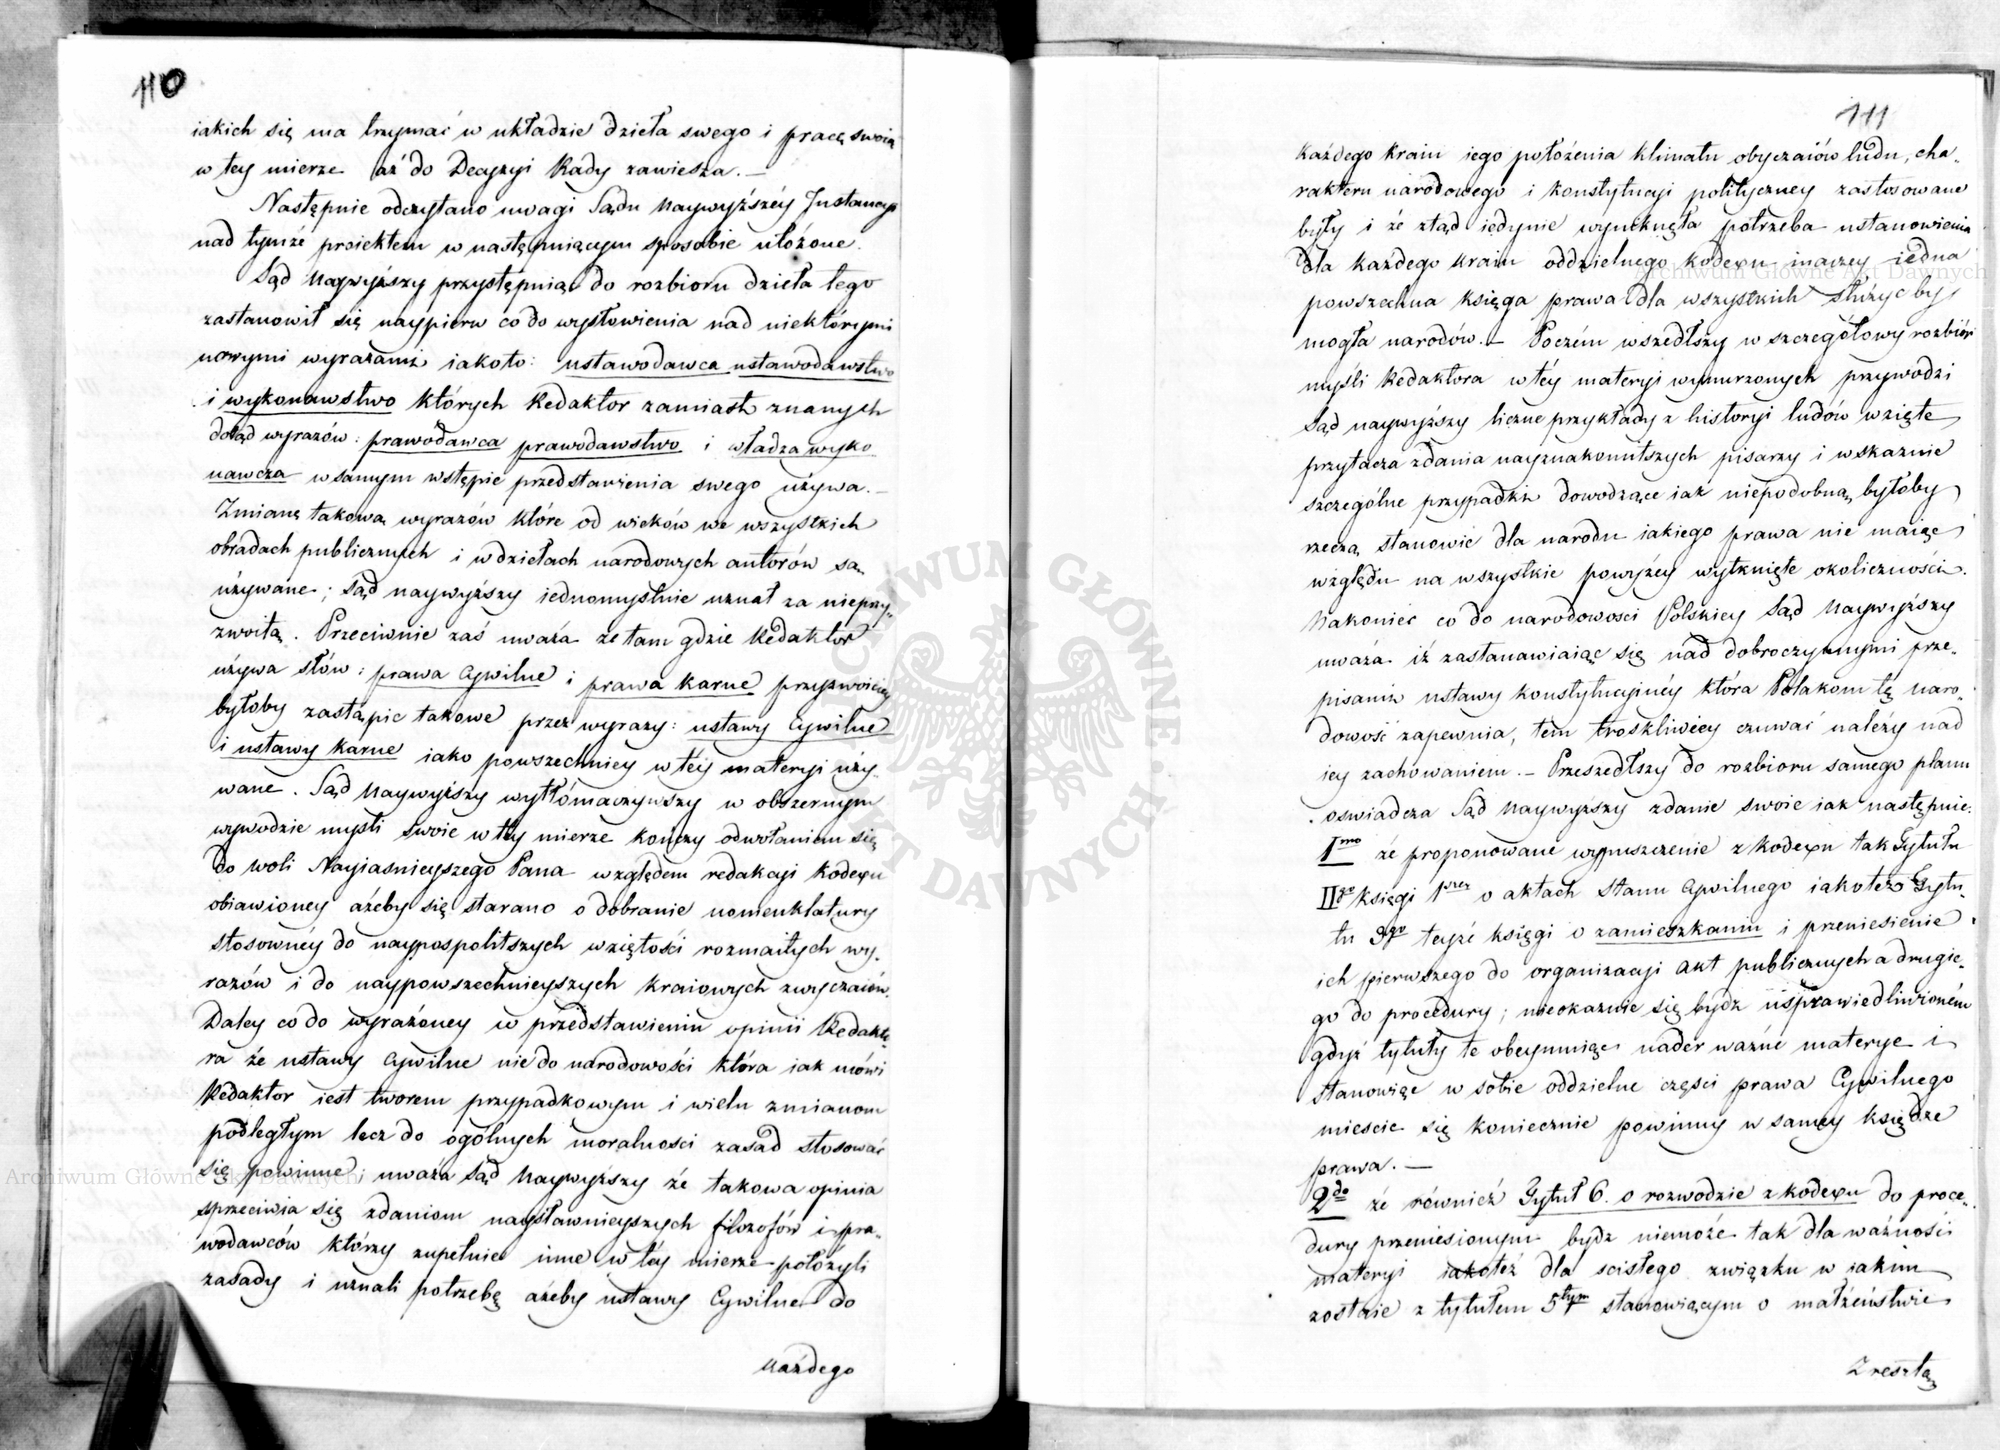 110
iakich się ma trzymać w układzie dzieła swego i pracę swoią
w tey mierze aż do Decyzyi Rady zawiesza. —
Następnie odczytano uwagi Sądu Naywyższéy Instancyi
nad tymże proiektem w następuiącym sposobie ułożone.
Sąd Naywyższy przystępuiąc do rozbioru dzieła tego
zastanowił się naypierw co do wysłowienia nad niektórymi
nowymi wyrazami iakoto: ustawodawca ustawodawstwo
i wykonawstwo których Redaktor zamiast znanych
dotąd wyrazów: prawodawca prawodawstwo i władza wyko
nawcza w samym wstępie przedstawienia swego używa. —
Zmianę takową wyrazów które od wieków we wszystkich
obradach publicznych i w dziełach narodowych autorów są
używane; Sąd naywyższy iednomyslnie uznał za nieprzy-
zwoitą. Przeciwnie zaś uważa ze tam gdzie Redaktor
używa słów: prawa Cywilne i prawa karne przyzwoiciey
byłoby zastąpic takowe przez wyrazy: ustawy Cywilne
i ustawy karne iako powszechniey w téy materyi uży-
wane. Sąd Naywyższy wytłómaczywszy w obszernym
wywodzie mysli swoie w téy mierze kończy odwołaniem się
do woli Nayiasnieyszego Pana względem redakcyi kodexu
obiawioney ażeby się starano o dobranie nomenklatury
stosownéy do naypospolitszych wziętości rozmaitych wy-
razów i do naypowszechnieyszych kraiowych zwyczaiów.
Daley co do wyrażoney w przedstawieniu opinii Redakto-
ra że ustawy Cywilne nie do narodowości która iak mówi
Redaktor iest tworem przypadkowym i wielu zmianom
podległym lecz do ogólnych moralności zasad stosować
się powinne; uważa Sąd Naywyższy że takowa opinia
sprzeciwia się zdaniom naysławnieyszych filozofów i pra-
wodawców którzy zupełnie inne w téy mierze położyli
zasady i uznali potrzebę ażeby ustawy Cywilne do
każdego
111
każdego kraiu iego położenia klimatu obyczaiów ludu, cha-
rakteru narodowego i konstytucyi polityczney zastosowane
były i że ztąd iedynie wyniknęła potrzeba ustanowienia
dla każdego kraiu oddzielnego kodexu inaczey iedna
powszechna księga prawa dla wszystkich służyc by
mogła narodów. — Poczém wszedłszy w szczegółowy rozbiór
myśli Redaktora w téy materyi wynurzonych przywodzi
Sąd naywyższy liczne przykłady z historyi ludów wzięte
przytacza zdania nayznakomitszych pisarzy i wskazuie
szczególne przypadki dowodzące iak niepodobną byłoby
rzeczą stanowić dla narodu iakiego prawa nie maiąc
względu na wszystkie powyżéy wytknięte okoliczności.
Nakoniec co do narodowosci Polskiey Sąd Naywyższy
uważa iż zastanawiaiąc się nad dobroczynnymi prze-
pisami ustawy konstytucyjnéy która Polakom tę naro-
dowość zapewnia, tém troskliwiey czuwać należy nad
iey zachowaniem. — Przeszedłszy do rozbioru samego planu
oswiadcza Sąd Naywyższy zdanie swoie iak następuie:
1mo że proponowane wypuszczenie z kodexu tak Tytułu
IIgo księgi 1wszey o aktach stanu Cywilnego iakoteż Tytu-
łu 3go teyże księgi o zamieszkaniu i przeniesienie
ich pierwszego do organizacyi akt publicznych a drugie-
go do procedury; nieokazuie się bydz usprawiedliwioném
gdyż tytuły te obeymuiąc nader ważne materye i
stanowiąc w sobie oddzielne części prawa Cywilnego
miescic się koniecznie powinny w samey księdze
prawa. —
2do że również Tytuł 6. o rozwodzie z kodexu do proce-
dury przeniesionym bydz niemoże tak dla ważności
materyi iakoteż dla scisłego związku w iakim
zostaie z tytułem 5tym stanowiącym o małżeństwie
Zresztą
Archiwum Główne Akt Dawnych
Archiwum Główne Akt Dawnych
ARCHIWUM GŁÓWNE AKT DAWNYCH